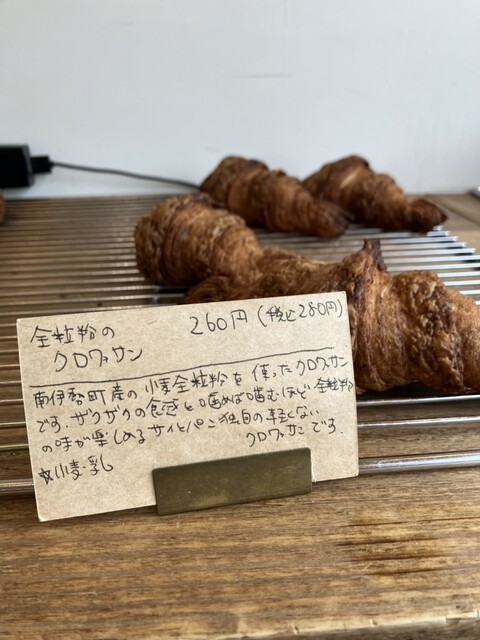 全粒粉の 260円(税込280円)
クロワッサン
南伊勢町産の小麦全粒粉を使ったクロワッサン
です。ザクザクの食感と噛めば噛むほど全粒粉
の味が楽しめるサイトパン独自の軽くない
クロワッサンです。
☆小麦・乳